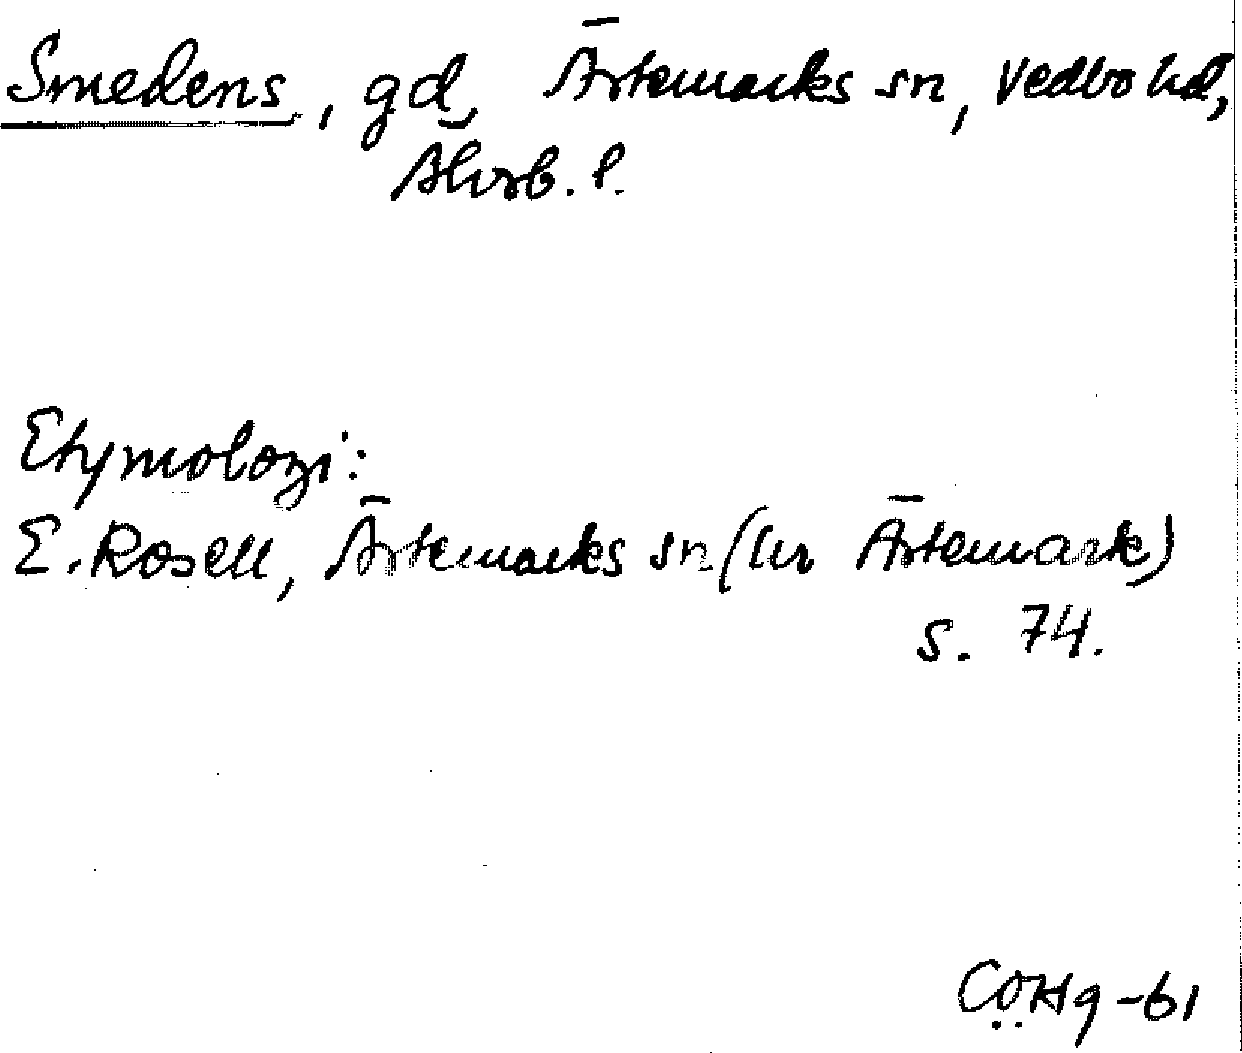 Smedens, gd, Ärtemarks sn, Vedbo hd,
Älvsb. l.
Etymologi:
E. Rosell, Ärtemarks sn (ur Ärtemark)
s. 74.
-61